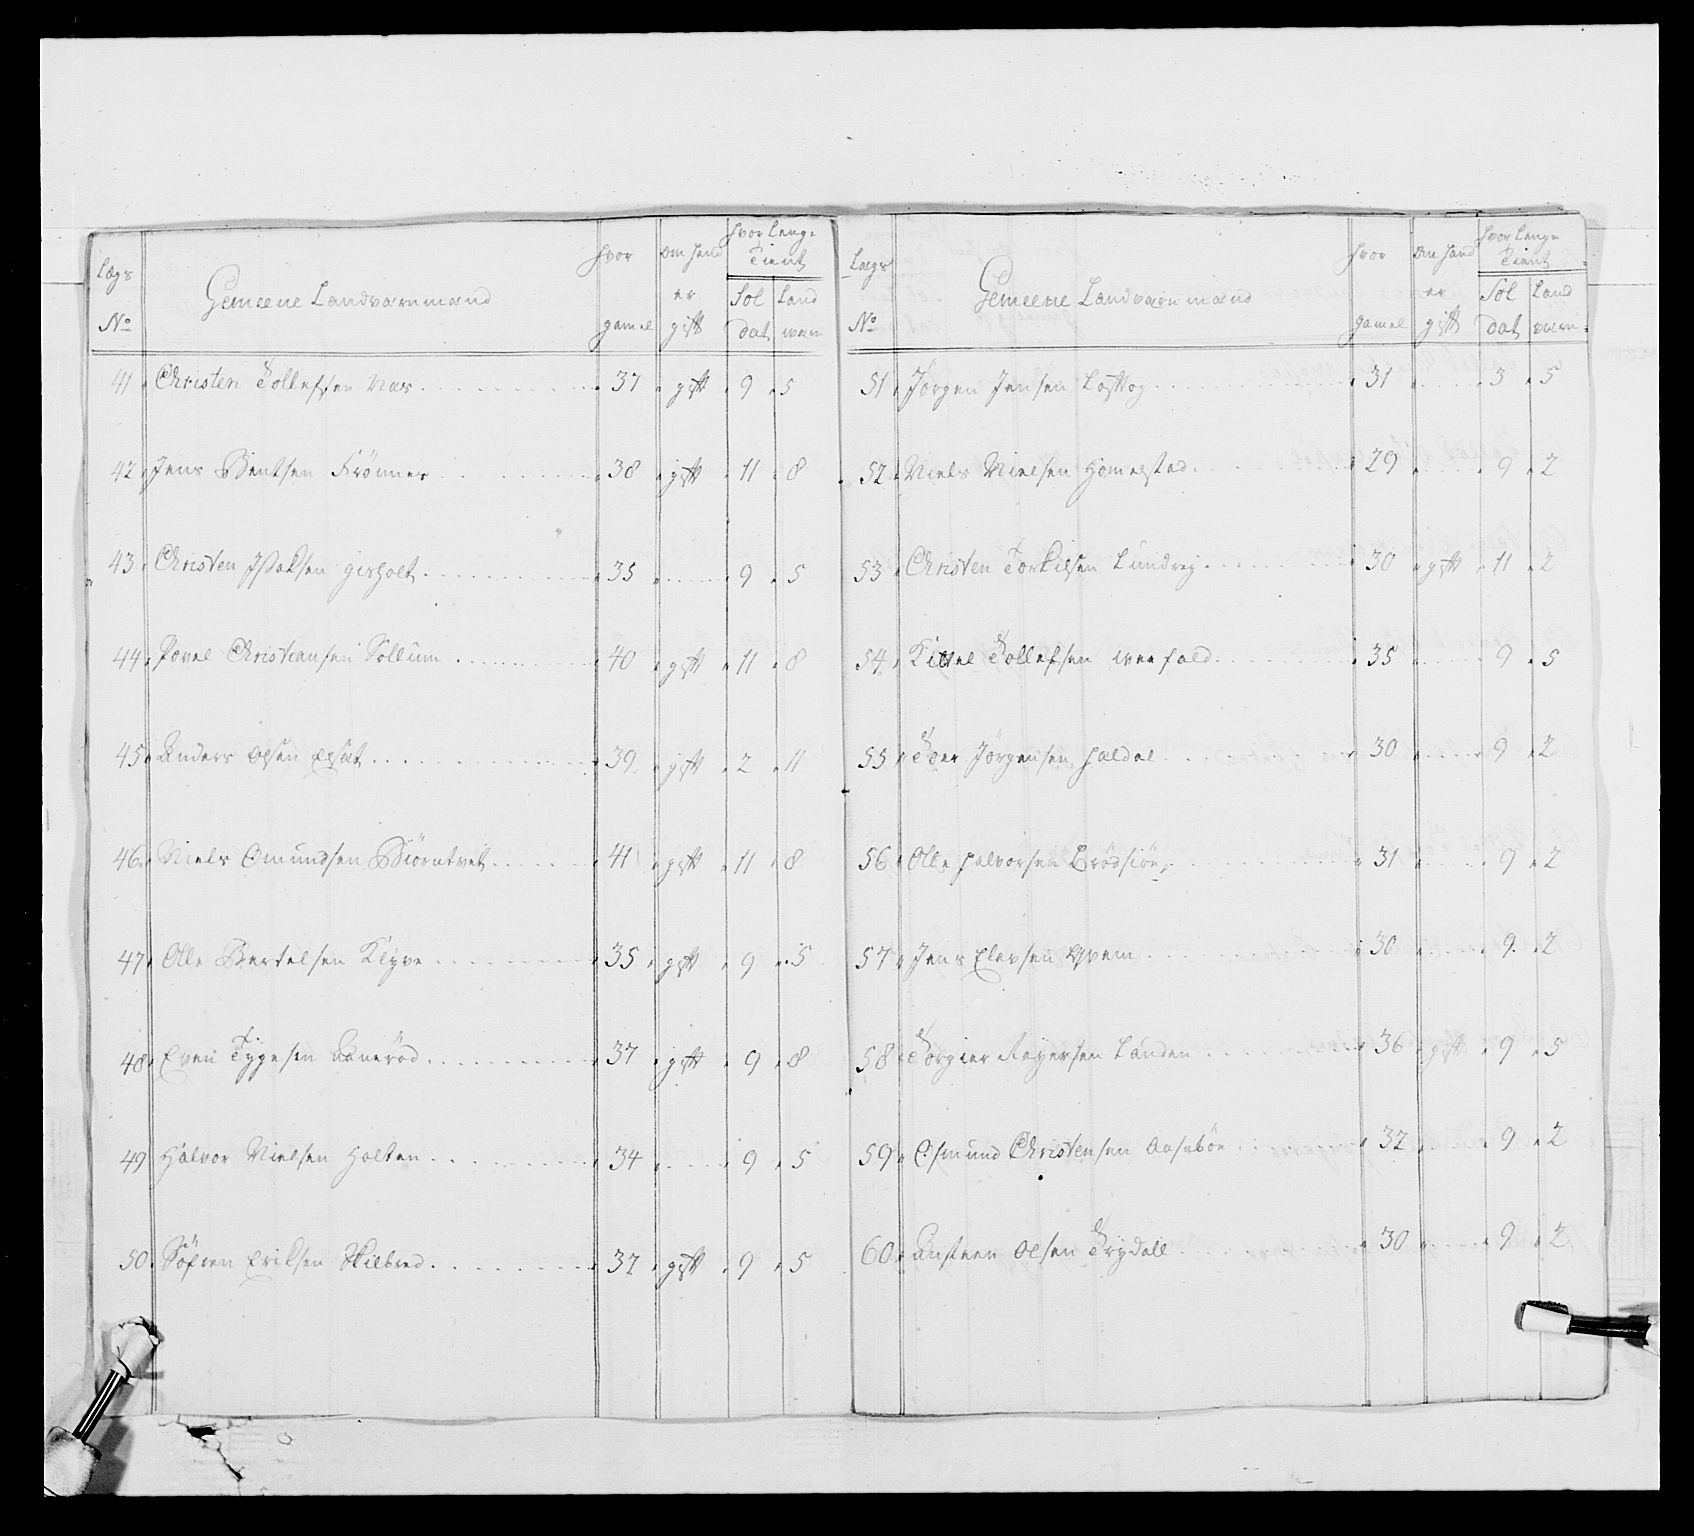 Lægs No Gemeene Landværnmænd hvor gamel om hand er gift hvor lenge Tient Sol dat Land wærn
41 Christen Tollefsen Aas 37 gift 9 5
42 Jens Bentsen Frönnes 38 gift 11 8
43 Christen Isaksen gisholt 35 9 5
44 Povel Christiansen Sollum 40 gift 11 8
45 Anders Olsen 39 gift 2 11
46 Niels Omundsen Biörntvet 41 gift 11 8
47 Olle Bertelsen Klyve 35 gift 9 5
48 Even Tygesen Aaneröd 37 gift 9 8
49 Halvor Nielsen Holten 34 9 5
50 Söfren Eriksen Skilbred 37 gift 9 5
Lægs No Gemeene Landværnmænd hvor gamel om hand er gift hvor lenge Tient Sol dat Land wærn
51 Jörgen Jensen 31 3 5
52 Niels Nielsen Homestad 29 9 2
53 Christen Torkilsen Lundrej 30 gift 11 2
54 Kittel Tollefsen 35 9 5
55 Toer Jörgensen Haldal 30 9 2
56 Olle Halvorsen Brödsiöe 31 9 2
57 Jens Elevsen 30 9 2
58 Torgier Rejersen Landen 36 gift 9 5
59 Osmund Christensen Aaseböe 32 9 2
60 Ansteen Olsen Trydall 30 9 2